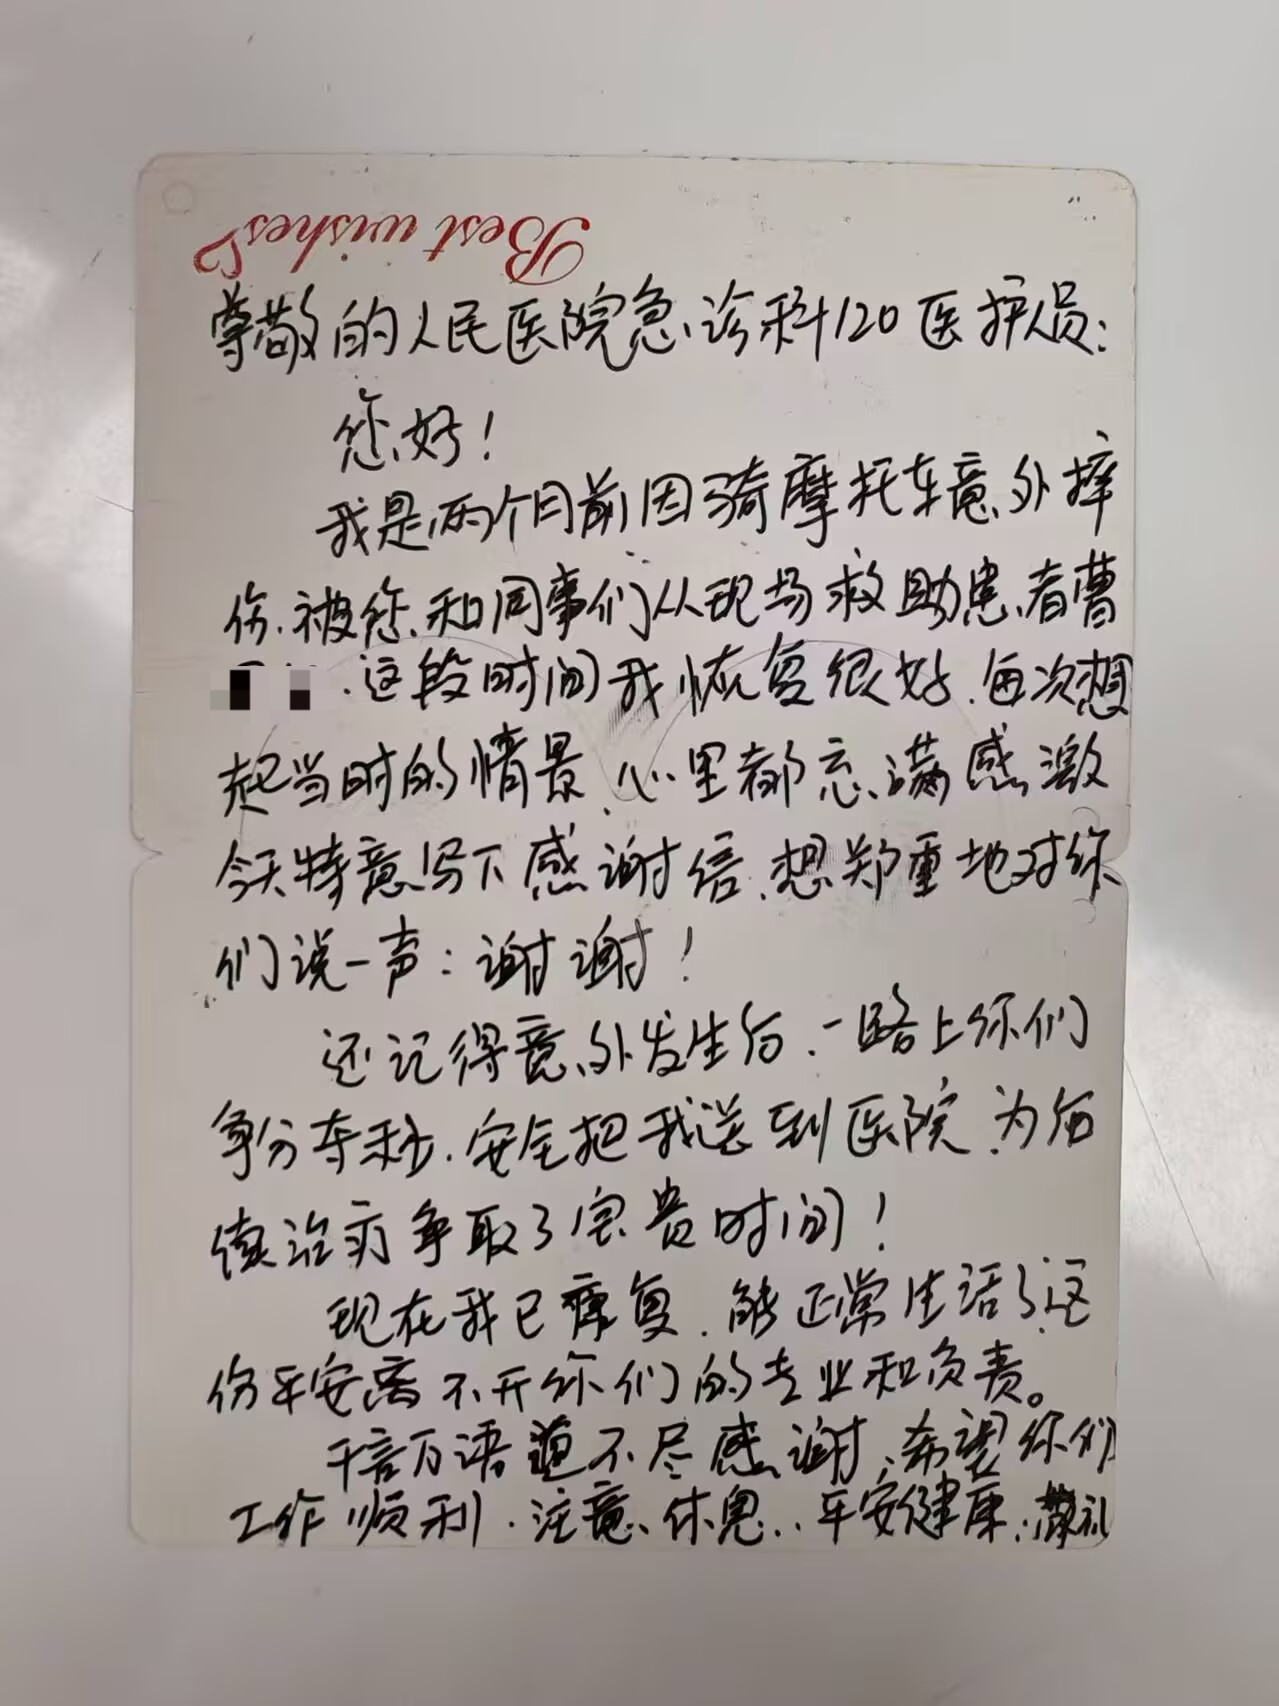 Best wishes
尊敬的人民医院急诊科120医护员：
您好！
我是两个月前因骑摩托车意外摔
伤.被您和同事们从现场救助患者曹
.这段时间我恢复很好.每次想
起当时的情景.心里都充满感激
今天特意写下感谢信.想郑重地对你
们说一声：谢谢！
还记得意外发生后.一路上你们
争分夺秒.安全把我送到医院.为后
续治疗争取了宝贵时间！
现在我已康复.能正常生活了这
份平安离不开你们的专业和负责。
千言万语道不尽感谢.希望你们
工作顺利.注意休息..平安健康.敬礼